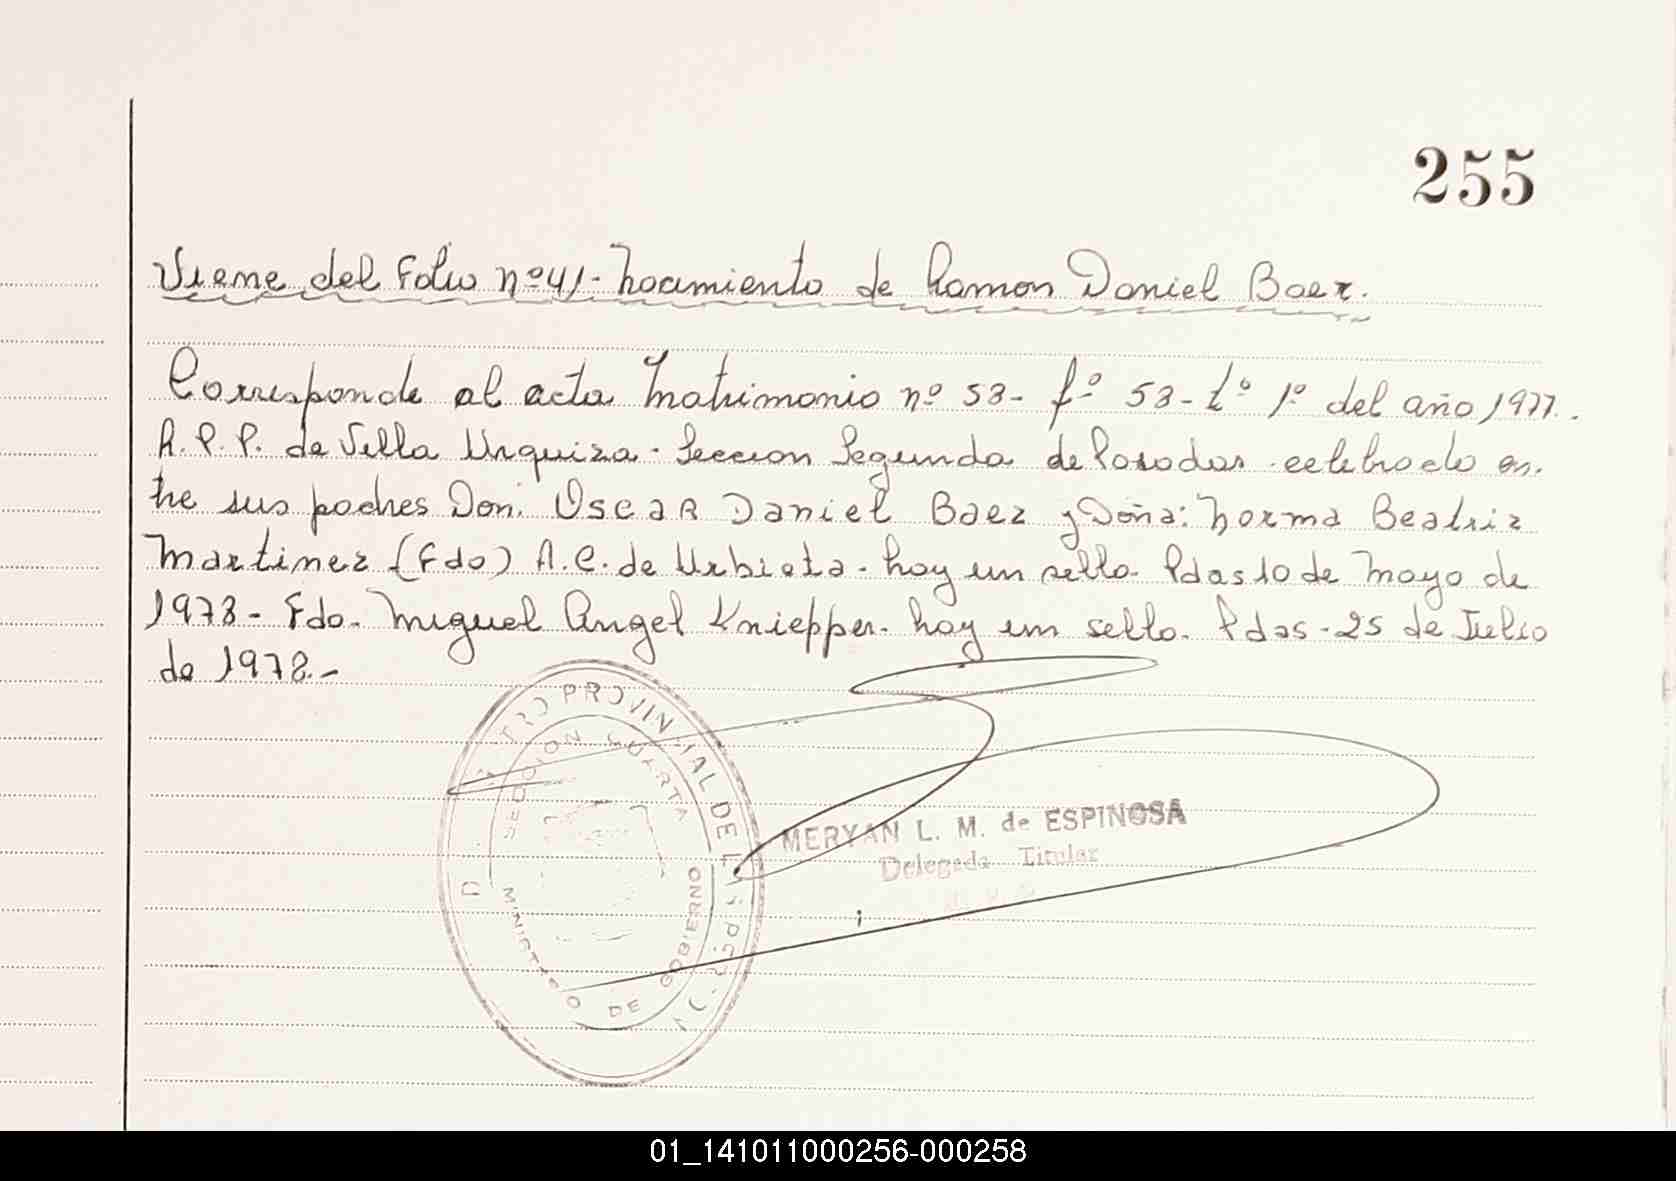 255
Viene del Folio nº 41 - Nacimiento de Ramon Daniel Baez.
Corresponde al acta Matrimonio nº 53 - fº 53 - tº 1º del año 1977.
R.P.P. de Villa Urquiza - Seccion Segunda de Posadas - celebrado en-
tre sus padres Don: Oscar Daniel Baez y Doña: Norma Beatriz
Martinez (Fdo) A.C. de Urbieta - hay un sello - Pdas 10 de Mayo de
1978 - Fdo. Miguel Angel Knieppen - hay un sello. Pdas - 25 de Julio
de 1978.-
TRO PROVINCIAL DE
SECCION CUARTA
MINISTERIO DE GOBIERNO
MERYAN L. M. de ESPINOSA
Delegada Titular
01_141011000256-000258